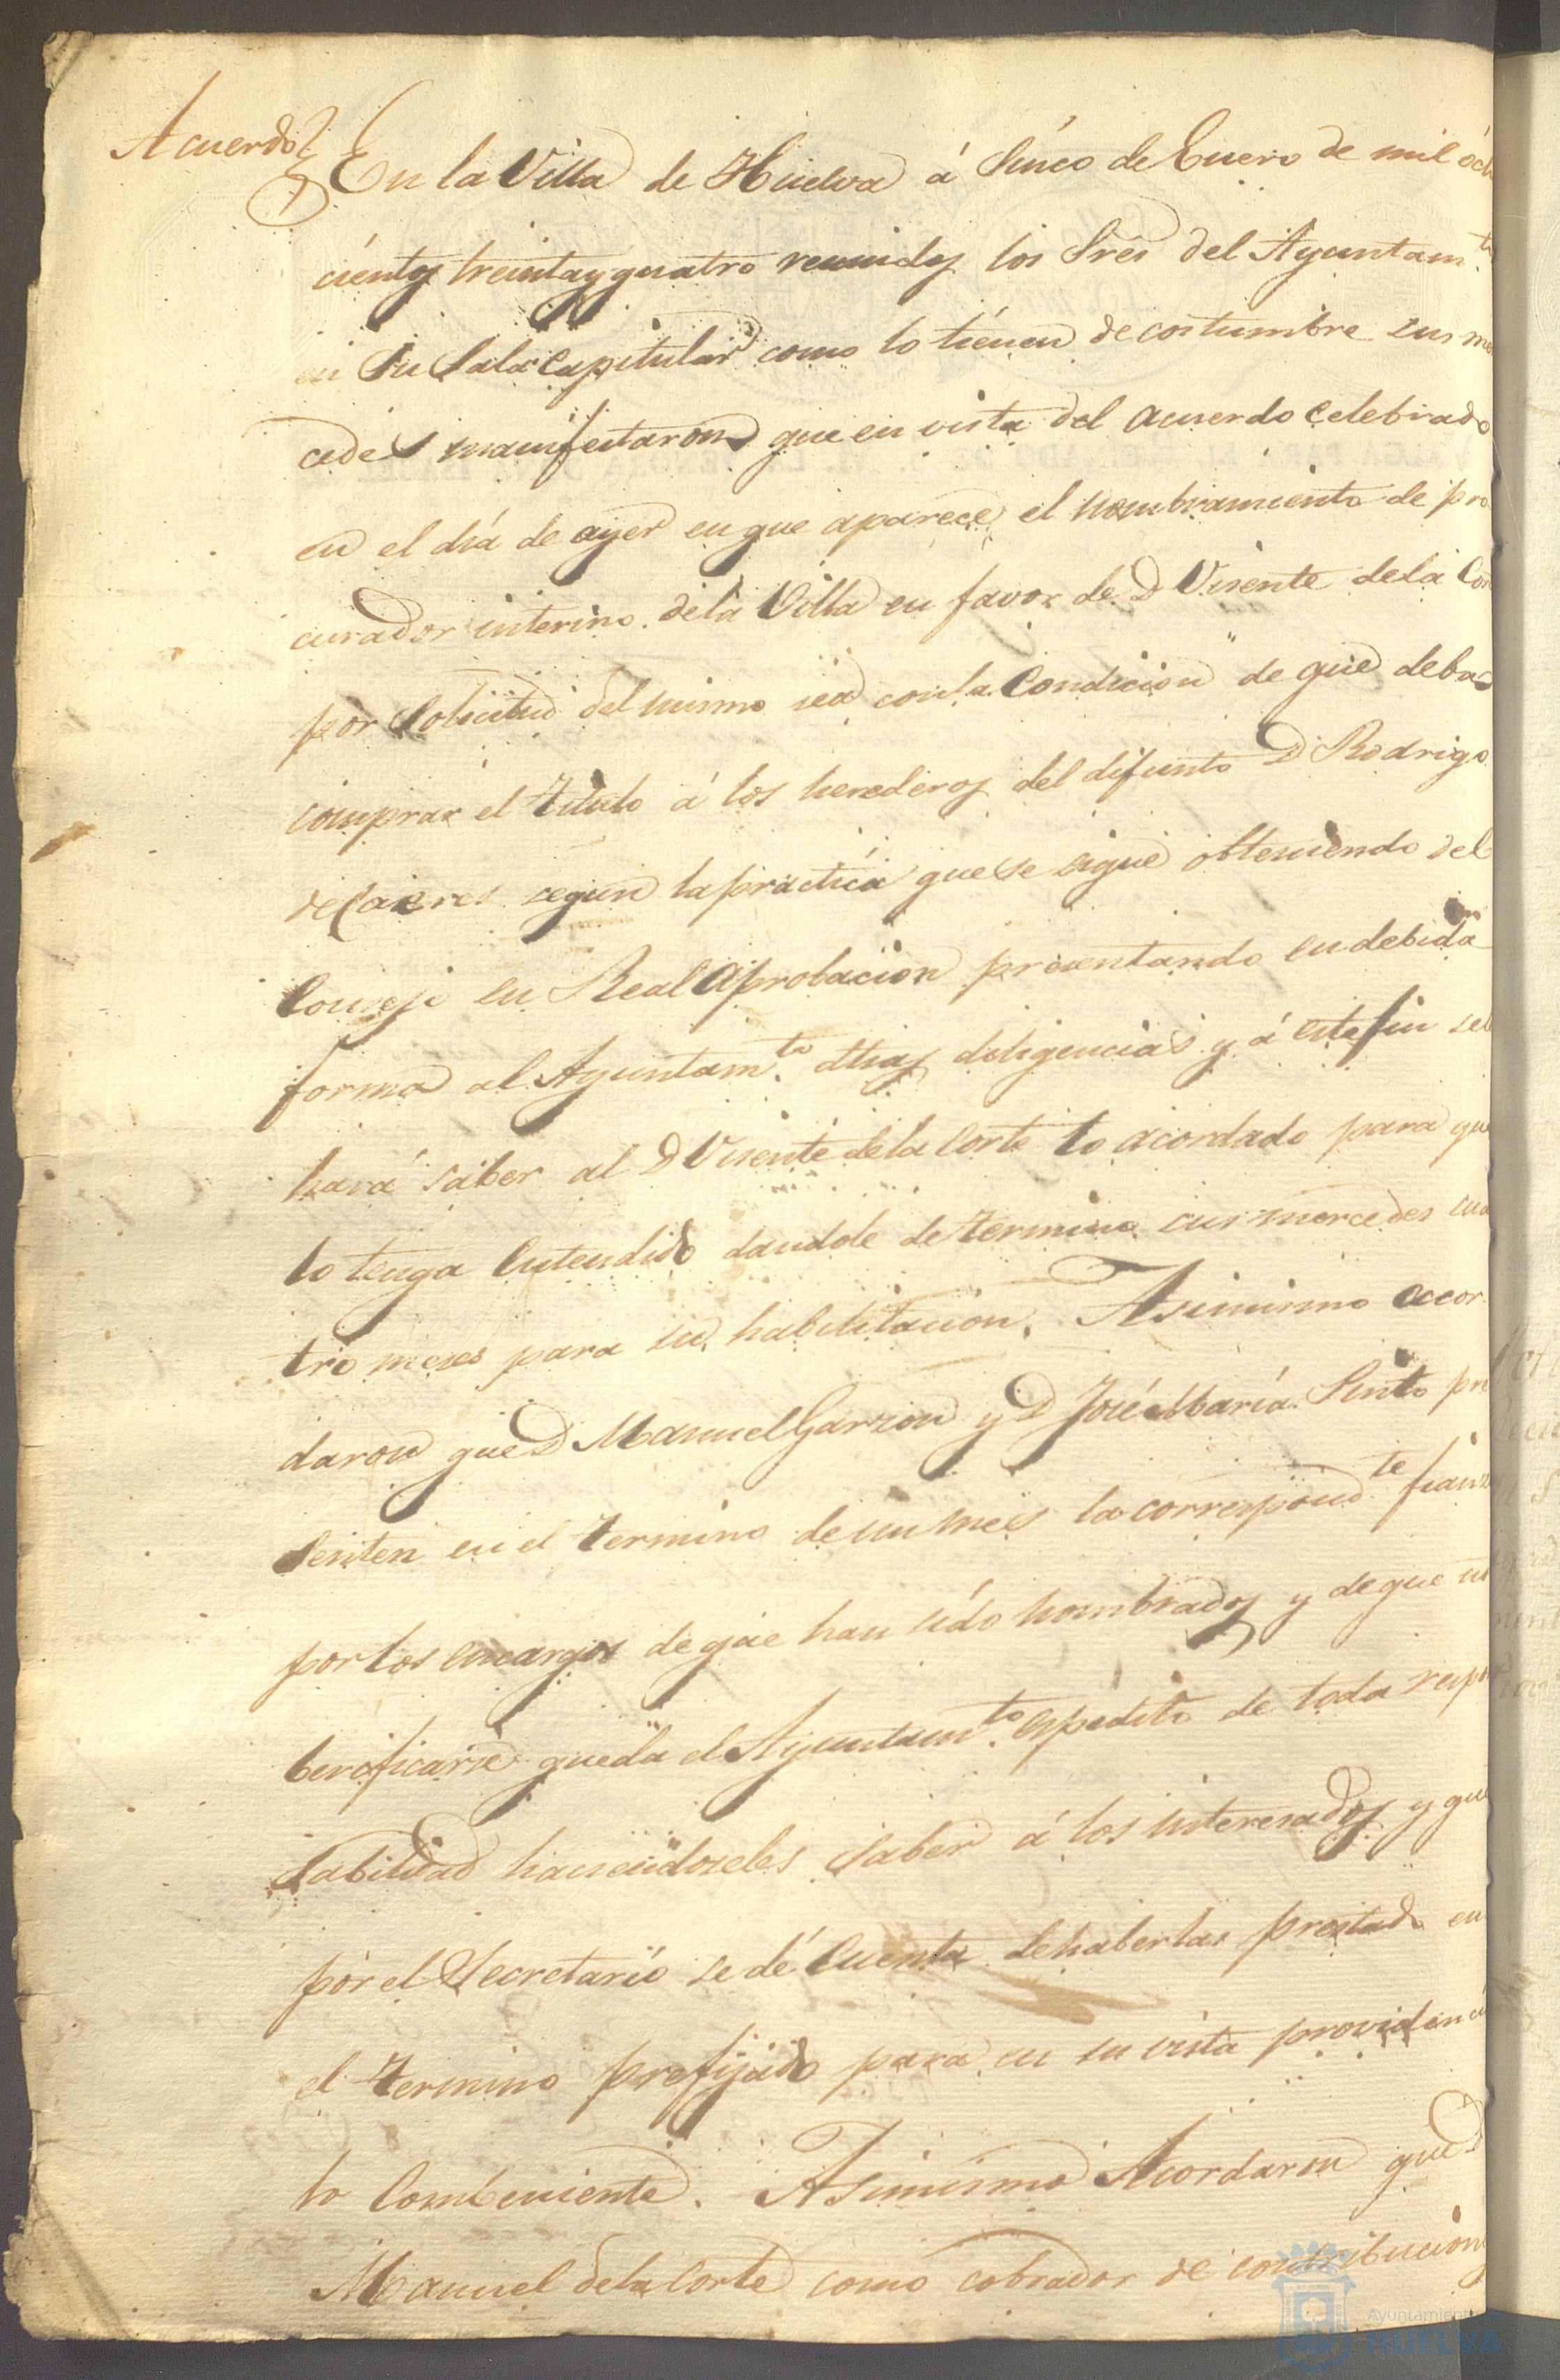 Acuerdo
En la Villa de Huelva á Sinco de Enero de mil och
cientos treinta y quatro reunidos los Sres del Ayuntam.to
en Su Sala Capitular como lo tienen de costumbre sus mer
cedes manifestaron que en vista del acuerdo celebrado
en el dia de ayer en que aparece el nombramiento de pro
curador interino de la Villa en favor de D Visente de la Cor
por solicitud del mismo sea con la Condicion de que deba
comprar el Titulo á los herederos del difunto D Rodrigo
de Caseres segun la práctica que se sigue obteniendo del
Consejo su Real aprobacion presentando en debida
forma al Ayuntam.to dhas diligencias y á este fin se le
hará saber al D Visente de la Corte lo acordado para que
lo tenga Entendido dandole de termino sus mercedes cua
tro meses para su habilitacion. Asimismo acor
daron que D Manuel Garzon y D José Maria Pinto pre
senten en el termino de un mes la correspond.te fianz
por los encargos de que han sido nombrados y de que no
berificarse queda el Ayuntam.to espedito de toda respon
sabilidad haciendoseles saber á los interesados y que
por el Secretario se dé Cuenta de haberlas prestado en
el termino prefijado para en su vista providenciar
lo Combeniente. Asimismo Acordaron que D
Manuel de la Corte como cobrador de contribuciones
Ayuntamiento
HUELVA